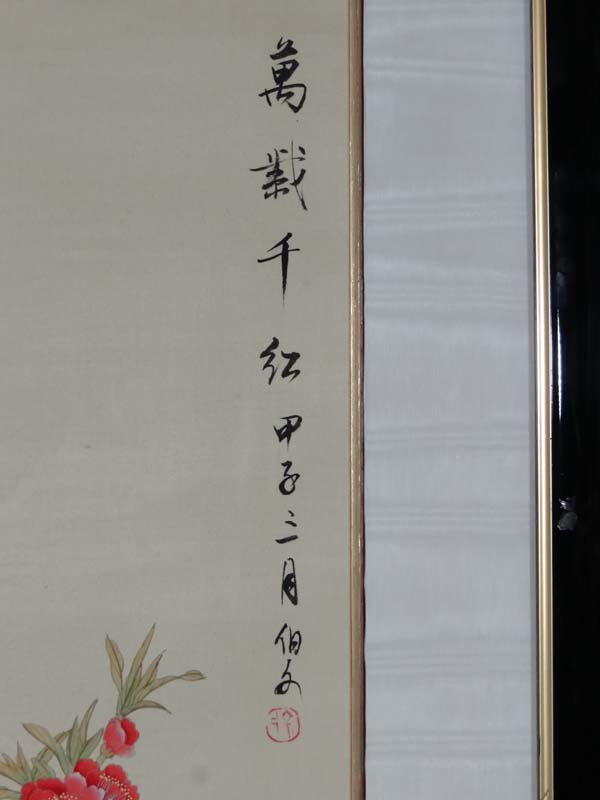 萬千紅甲子三月伯文